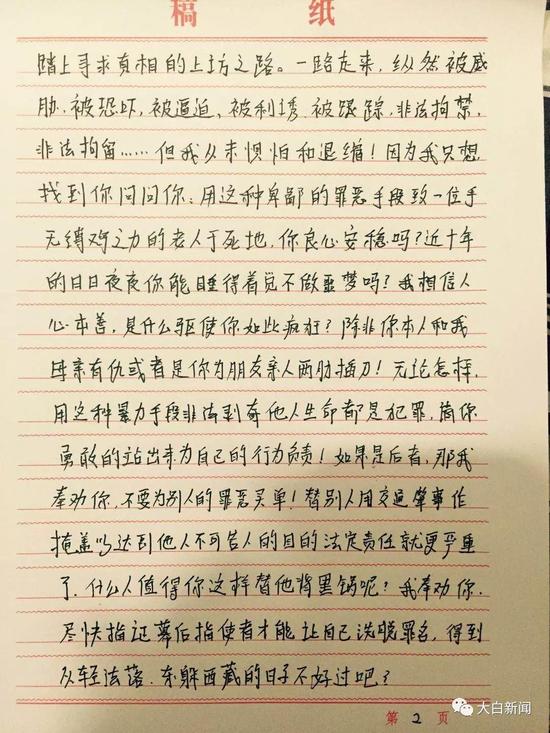 稿 纸
踏上寻求真相的上访之路。一路走来，纵然被威
胁、被恐吓，被逼迫，被利诱、被跟踪，非法拘禁，
非法拘留……但我从未惧怕和退缩！因为我只想
找到你问问你：用这种卑鄙的罪恶手段致一位手
无缚鸡之力的老人于死地，你良心安稳吗？近十年
的日日夜夜你能睡得着觉不做噩梦吗？我相信人
心本善，是什么驱使你如此疯狂？除非你本人和我
母亲有仇或者是你为朋友亲人两肋插刀！无论怎样，
用这种暴力手段非法剥夺他人生命都是犯罪，请你
勇敢的站出来为自己的行为负责！如果是后者，那我
奉劝你，不要为别人的罪恶买单！替别人用交通肇事作
掩盖以达到他人不可告人的目的法定责任就更严重
了，什么人值得你这样替他背黑锅呢？我奉劝你，
尽快指证幕后指使者才能让自己洗脱罪名，得到
从轻法落，东躲西藏的日子不好过吧？
第 2 页
大白新闻